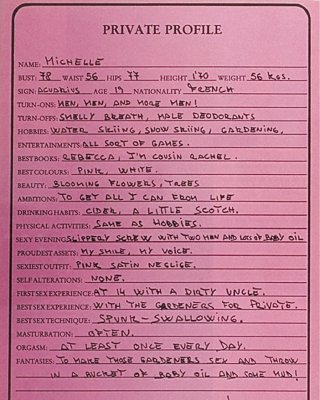 PRIVATE PROFILE
NAME: MICHELLE
BUST: 78 WAIST 56 HIPS 77 HEIGHT 170 WEIGHT 56 KGS.
SIGN: AQUARIUS AGE 19 NATIONALITY FRENCH
TURN-ONS: MEN, MEN, AND MORE MEN!
TURN-OFFS: SMELLY BREATH, MALE DEODORANTS
HOBBIES: WATER SKIING, SNOW SKIING, GARDENING,
ENTERTAINMENTS: ALL SORT OF GAMES.
BEST BOOKS: REBECCA, I'M COUSIN RACHEL.
BEST COLOURS: PINK, WHITE.
BEAUTY: BLOOMING FLOWERS, TREES
AMBITIONS: TO GET ALL I CAN FROM LIFE
DRINKING HABITS: CIDER, A LITTLE SCOTCH.
PHYSICAL ACTIVITIES: SAME AS HOBBIES.
SEXY EVENING: SLIPPERY SCREW WITH TWO MEN AND LOTS OF BABY OIL
PROUDEST ASSETS: MY SMILE, MY VOICE.
SEXIEST OUTFIT: PINK SATIN NEGLIGE.
SELF ALTERATIONS: NONE.
BEST SEX EXPERIENCE: WITH THE GARDENERS FOR PRIVATE.
BEST SEX TECHNIQUE: SPUNK-SWALLOWING.
MASTURBATION: OFTEN.
ORGASM: AT LEAST ONCE EVERY DAY.
FANTASIES: TO MAKE THOSE GARDENERS SEX AND THROW
IN A BUCKET OF BABY OIL AND SOME MUD!